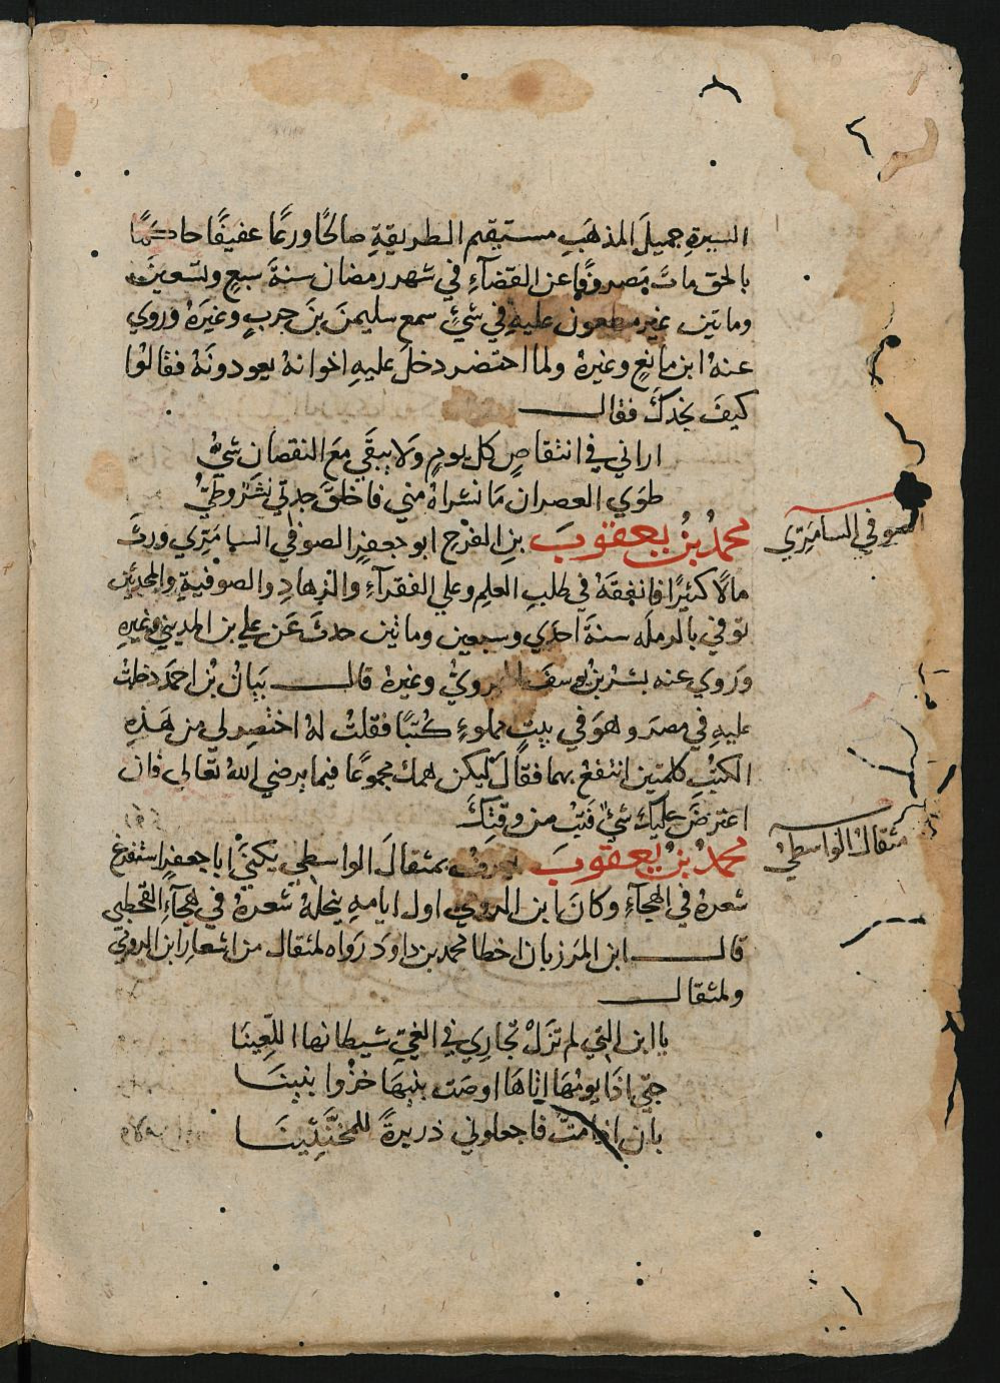 السيرةِ جميلَ المذهَبِ مستقيم الطريقةِ صالحًا ورعًا عفيفًا حاكمًا
بالحق مات مَصروفًا عن القضآءِ في شهر رمضان سنةَ سبعٍ وتسعين
وماتين غير مطعون عليهِ في شيءٍ سمع سليمنَ بنَ حربٍ وغيَرهُ وروي
عنهُ ابن مانعٍ وغيرهُ ولما احتضر دخلَ عليهِ اخوانهُ يعودونَهُ فقالوا
كيفَ نجدكَ فقال
اراني في انتقاصٍ كل يومٍ وَلا يبقَي مَعَ النقصان شيُّ
طوَي العصران مَا نشراهُ مني فاخلقَ جدتي نَشَرٌ وطيُّ
صوفي السامَرِّي
محمدُ بنُ يعقوبَ بنِ الفرَج ابو جعفرٍ الصوفي السامَرِّي ورثَ
مالاً كثيرًا فانفقَهُ في طلبِ العلمِ وعلي الفقرآءِ والزهادِ والصوفيةِ والمحدثين
توفي بالرملَه سنةَ احدَي وسبعين وماتين حدثَ عَن علي بن المديني وغيرهِ
وَروي عنه بشر بن يوسفَ الهرويُّ وغيرهُ قال بَيانُ بنُ احمَدَ دخلتُ
عليهِ في مصرَ وهوَ في بيتٍ مملوءٍ كُتبًا فقلتُ لهُ اختصِر لي من هَذِهِ
الكتُبِ كلمتين انتفعُ بهما فقالَ ليكن همك مجموعًا فيما يرضي اللهُ تعالى فان
اعترضَ عليكَ شيٌ فتُب من وقتِكَ
مثقال الواسطيُّ
محمدُ بنُ يعقوبَ يعرفُ بمثقالَ الواسطي يكنيَّ ابا جعفرٍ استفرغ
شعرهُ في الهجآءِ وكانَ ابن الرومي اول ايامهِ ينحلهُ شعرهُ في هجآءِ القحطبي
قال ابن المَرزبان اخطا محمد بن داودَ رَواه لمثقال من اشعارِ ابن الرومي
ولمثقال
يا ابن التي لم تزَلْ تجارِي في الغيّ شيطانها اللعِينَا
حتي اذَا يومُهَا اتاهَا اوصَت بنيهَا خزُوا بنينَا
بان اذا متُّ فاجعلوني ذريرةً للمخنَّثِينَا